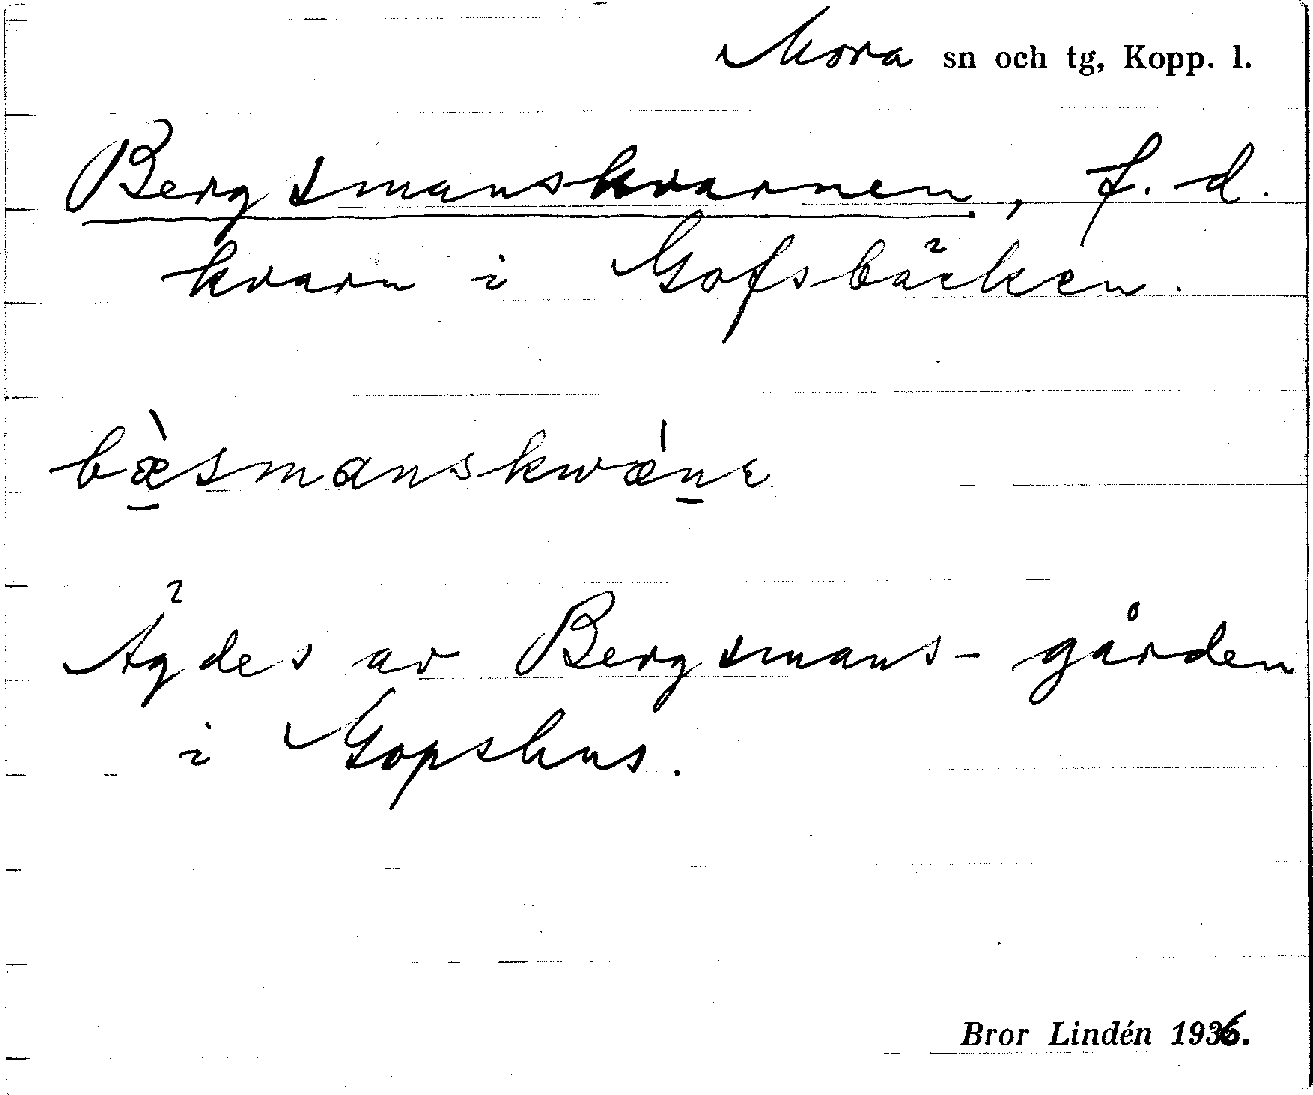 Mora sn och tg, Kopp. l.
Bergsmanskvarnen, f. d.
kvarn i Gofsbäcken.
bæ̠̀smanskwǽn̠e
Ägdes av Bergsmans-gården
i Gopshus.
Bror Lindén 1936.